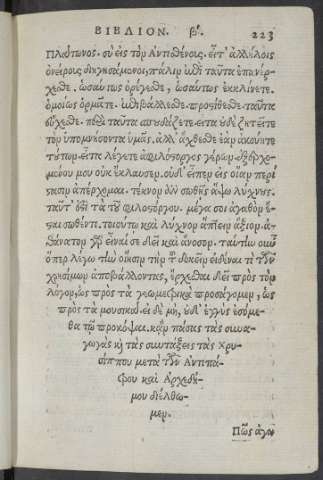 ΒΙΒΛΙΟΝ. β'. 223
Πλάτωνος. σὺ εἰς τὸν Ἀντισθένους. εἶτ' ἀλλήλοις
ὀνείρους διηγησάμενοι, πάλιν ἐπὶ ταῦτα ἐπανέρ-
χεσθε. ὡσαύτως ὀρέγεσθε, ὡσαύτως ἐκκλίνετε.
ὁμοίως ὁρμᾶτε. ἐπιβάλλεσθε. προτίθεσθε. ταῦτα
εὔχεσθε. περὶ ταῦτα σπουδάζετε. εἶτα οὐδὲ ζητεῖτε
τὸν ὑπομνήσοντα ὑμᾶς. ἀλλ' ἄχθεσθε ἐὰν ἀκούητε
τούτων. εἶτα λέγετε ἀφιλόστοργος γέρων. ἐξερχο-
μένου μου οὐκ ἔκλαυσεν. οὐδ' εἶπεν εἰς οἵαν περί
στασιν ἀπέρχομαι. τέκνον ἐὰν σωθῇς ἅψω λύχνους.
ταῦτ' ἐστὶ τὰ τοῦ φιλοστόργου. μέγα σοι ἀγαθὸν ἔ-
σται σωθέντι. τοιούτῳ καὶ λύχνων ἄξιον. ἀ-
θάνατον γὰρ εἶναί σε δεῖ καὶ ἄνοσον. ταύτην οὖν
ὅπερ λέγω τὴν οἴησιν τὴν τοῦ δοκεῖν εἰδέναι τι τῶν
χρησίμων ἀποβάλλοντας, ἔρχεσθαι δεῖ πρὸς τὸν
λόγον, ὡς πρὸς τὰ γεωμετρικὰ προσάγομεν, ὡς
πρὸς τὰ μουσικά. εἰ δὲ μὴ, οὐδ' ἐγγὺς ἐσόμε-
θα τῷ προκόψαι. κἂν πάσας τὰς συνα-
γωγὰς καὶ τὰς συντάξεις τὰς Χρυ-
σίππου μετὰ τῶν Ἀντιπά-
τρου καὶ Ἀρχεδή-
μου διέλθω-
μεν.
Πῶς ἀγω